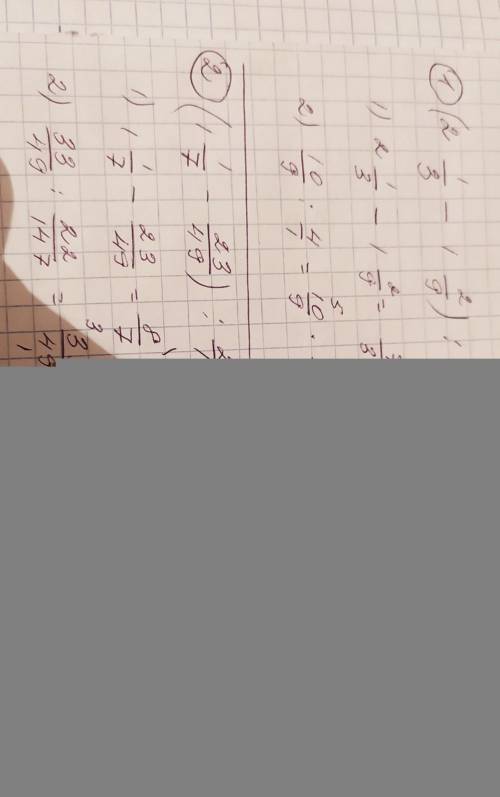 ① (2 1/3 - 1 2/9) :
1) 2 1/3 - 1 2/9 =
2) 10/9 : 4/1 = 10/9 ·
② (1 1/7 - 23/49) :
1) 1 1/7 - 23/49 = 8/7
2) 33/49 : 22/147 =